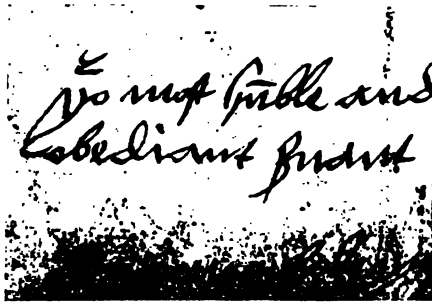 Yoʳ most hūble and
obediant ſuant